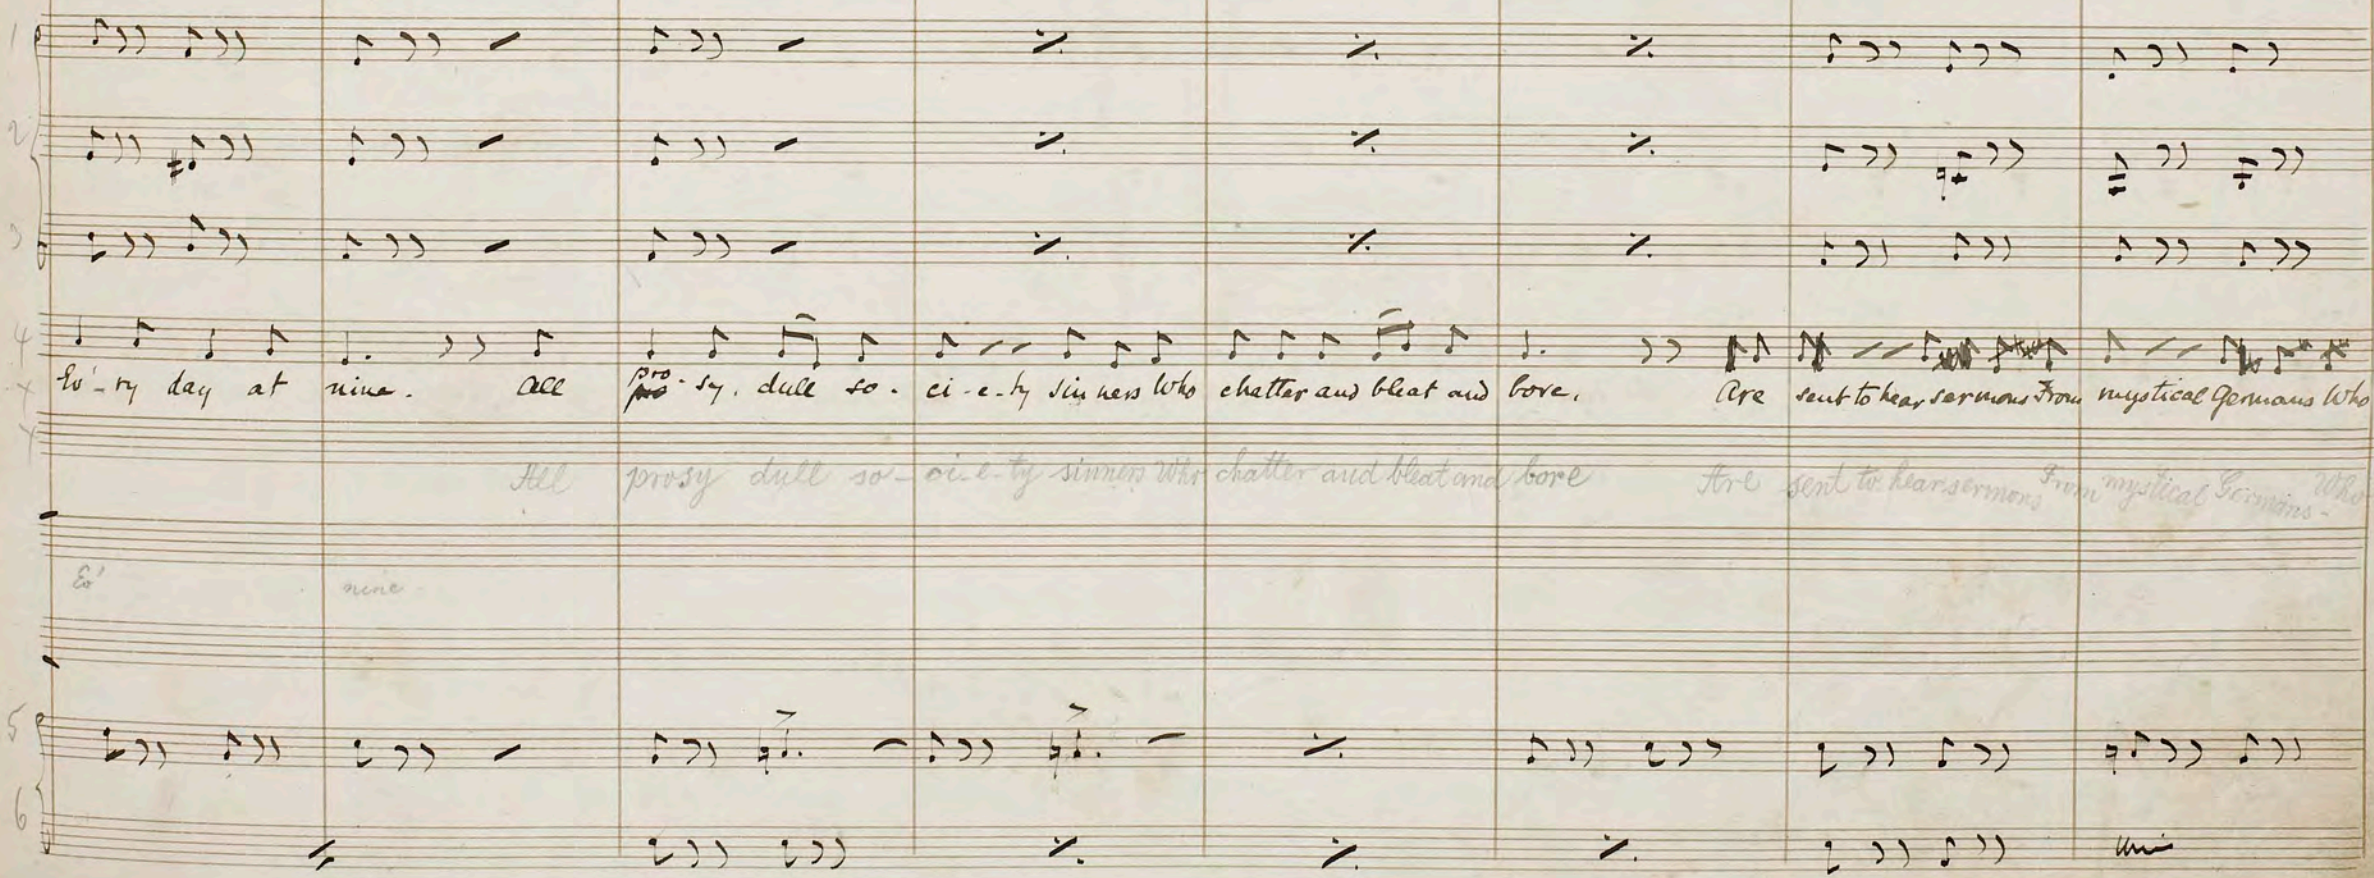 1
2
3
4
Ev'-ry day at nine. All pro-sy, dull so-ci-e-ty sinners Who chatter and bleat and bore, Are sent to hear sermons From mystical Germans Who
All prosy dull so-ci-e-ty sinners Who chatter and bleat and bore Are sent to hear sermons From mystical Germans - Who
Ev' nine
5
6